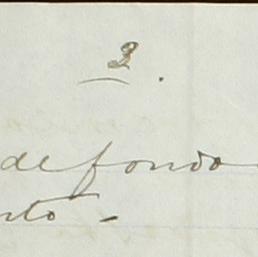 2.
de fondo
nto -